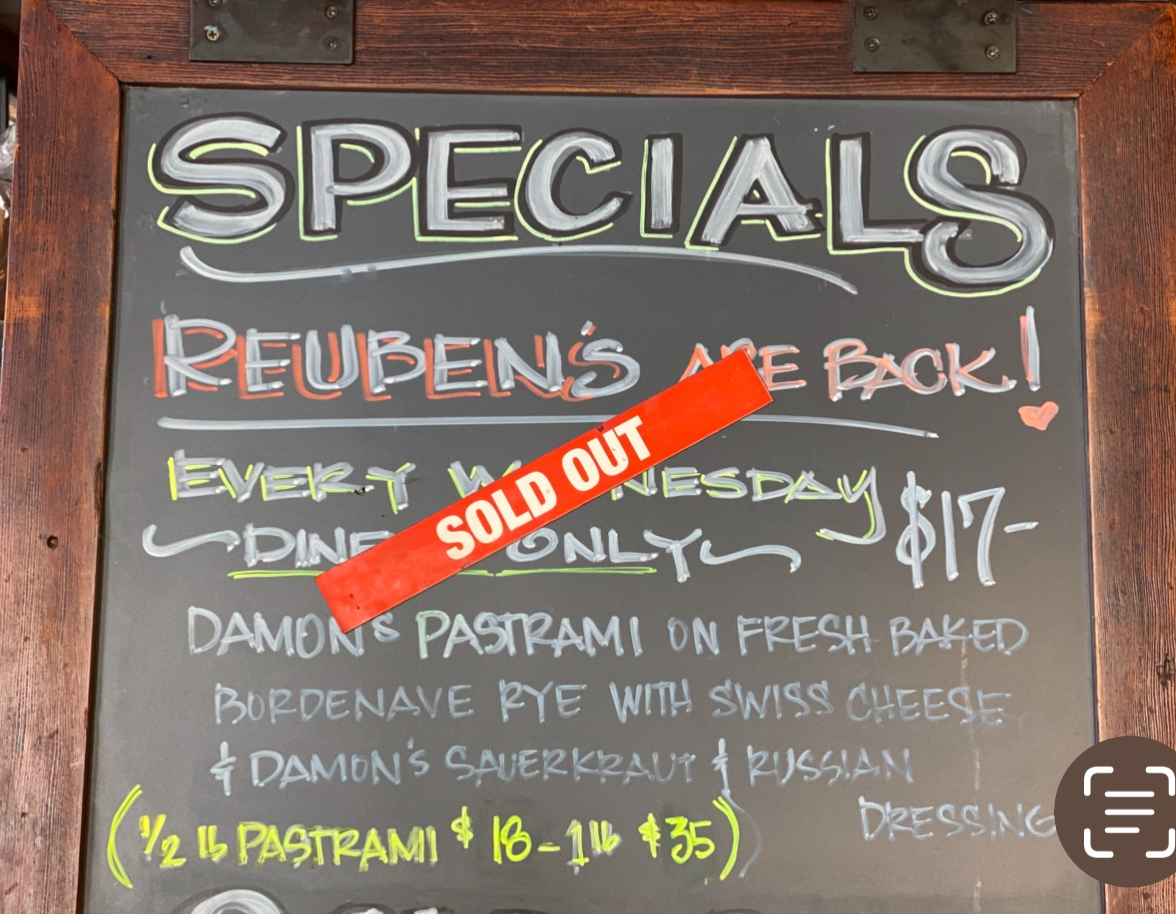 SPECIALS
REUBEN'S ARE BACK!
EVERY WEDNESDAY
SOLD OUT
~DINE ONLY~ $17-
DAMON'S PASTRAMI ON FRESH BAKED
BORDENAVE RYE WITH SWISS CHEESE
& DAMON'S SAUERKRAUT & RUSSIAN
DRESSING
(1/2 lb PASTRAMI $18 - 1 lb $35)